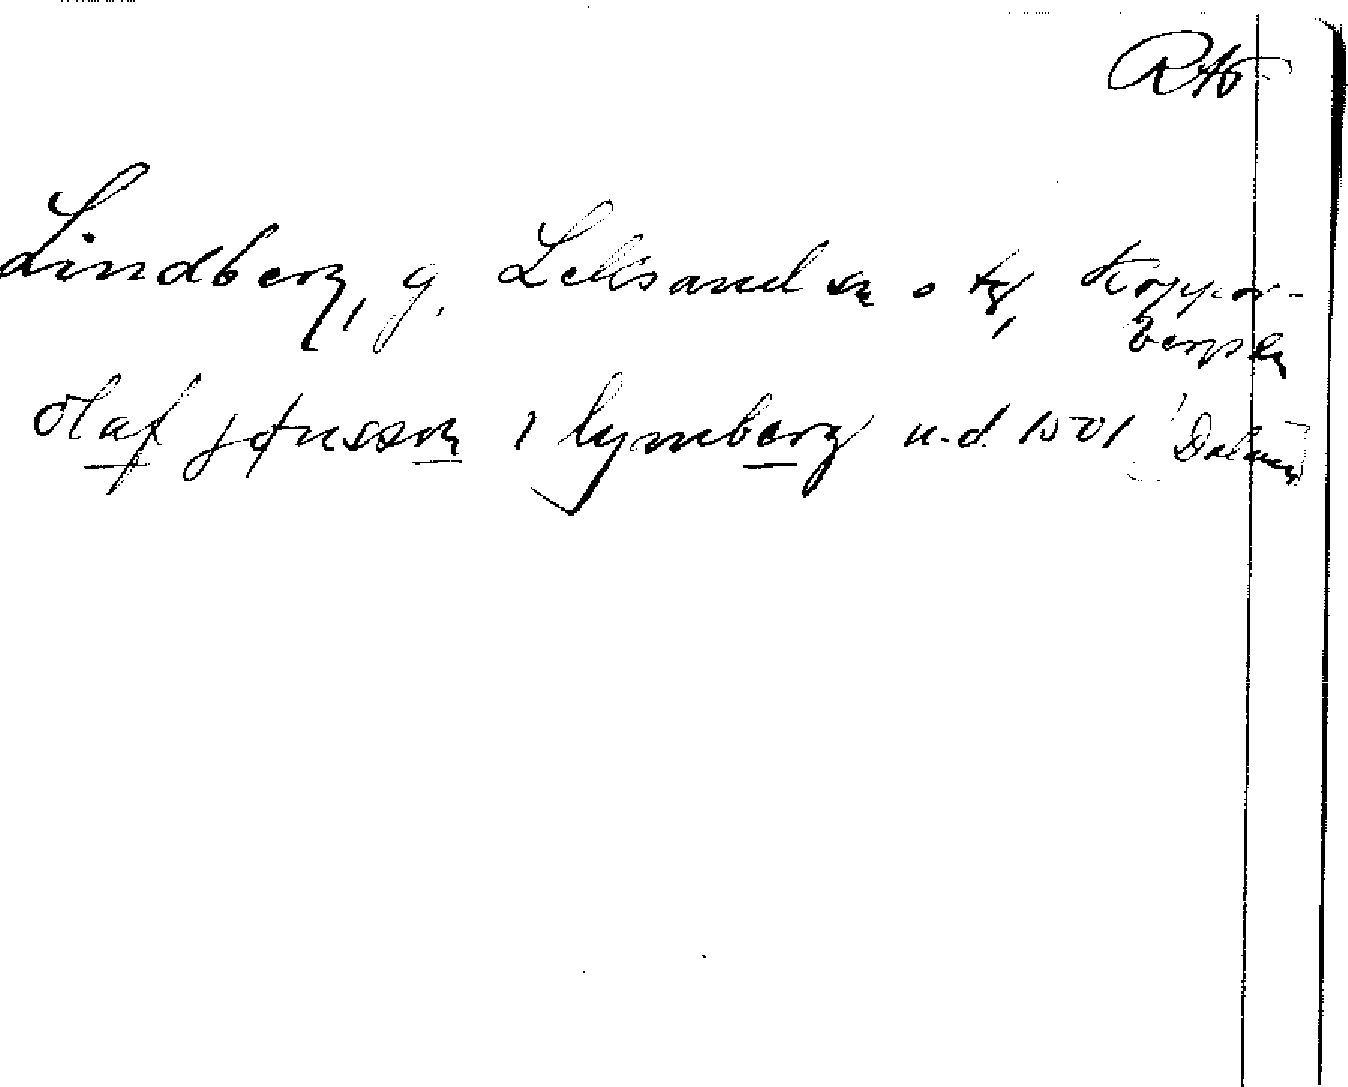 RAÖ
Lindberg, g. Leksands sn o tg, Koppar-
bergs l.
Olaf jönsson i lymberg u.d. 1501 (Dalarna)